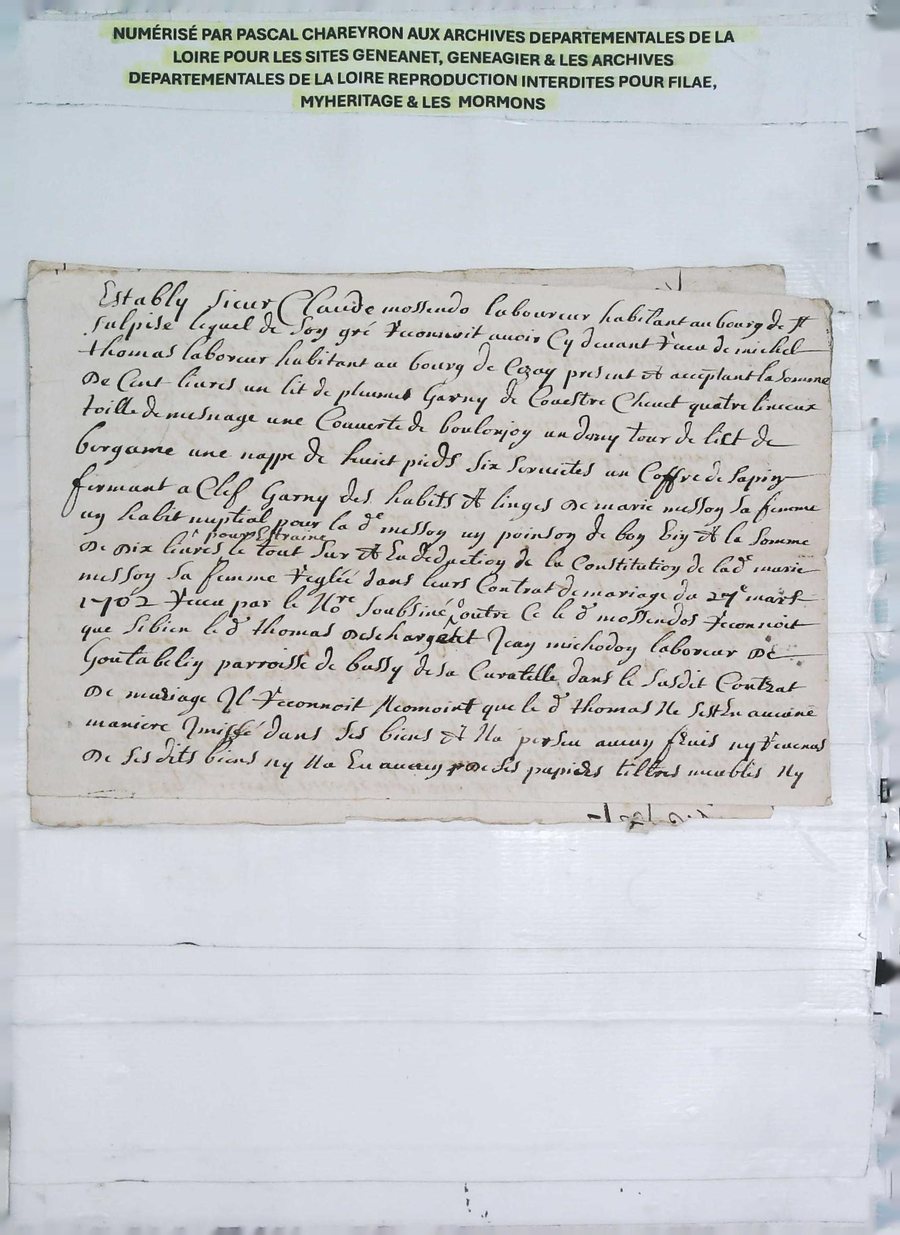 NUMÉRISÉ PAR PASCAL CHAREYRON AUX ARCHIVES DEPARTEMENTALES DE LA
LOIRE POUR LES SITES GENEANET, GENEAGIER & LES ARCHIVES
DEPARTEMENTALES DE LA LOIRE REPRODUCTION INTERDITES POUR FILAE,
MYHERITAGE & LES MORMONS
Establly sieur Claude mossendo laboureur habitant au bourg de St
sulpise lequel de son gré reconnoit avoir Cy devant receu de michel
thomas laboreur habitant au bourg de Cezay present et acceptant la somme
De Cent livres un lit de plumes Garny de Couestre Chevet quatre linceux
toille de mesnage une Couverte de boulonjon un demy tour de lict de
bergame une nappe de huict pieds six serviettes un Coffre de sapin
fermant a Clef Garny des habits et linges De marie messon sa femme
un habit nuptial pour la de messon un poinson de bon vin et la somme
pour Estraine
De Dix livres le tout sur et En deduction de la Constitution de lade marie
messon sa femme reglée dans leurs Contrat de mariage du 27e mars
1702 receu par le Nore soubsiné outre Ce le d mossendos reconnoit
que sibien le d thomas Descharge et Jean michodon laboreur De
Goutabelin parroisse de bussy de sa Curatelle dans le susdit Contrat
De mariage Il reconnoit Neomoint que le d thomas Ne sest En aucune
maniere Imissé dans ses biens et Na perseu aucun fruis ny revenus
De ses dits biens ny Na Eu aucuns De ses papiers tiltres meubles Ny